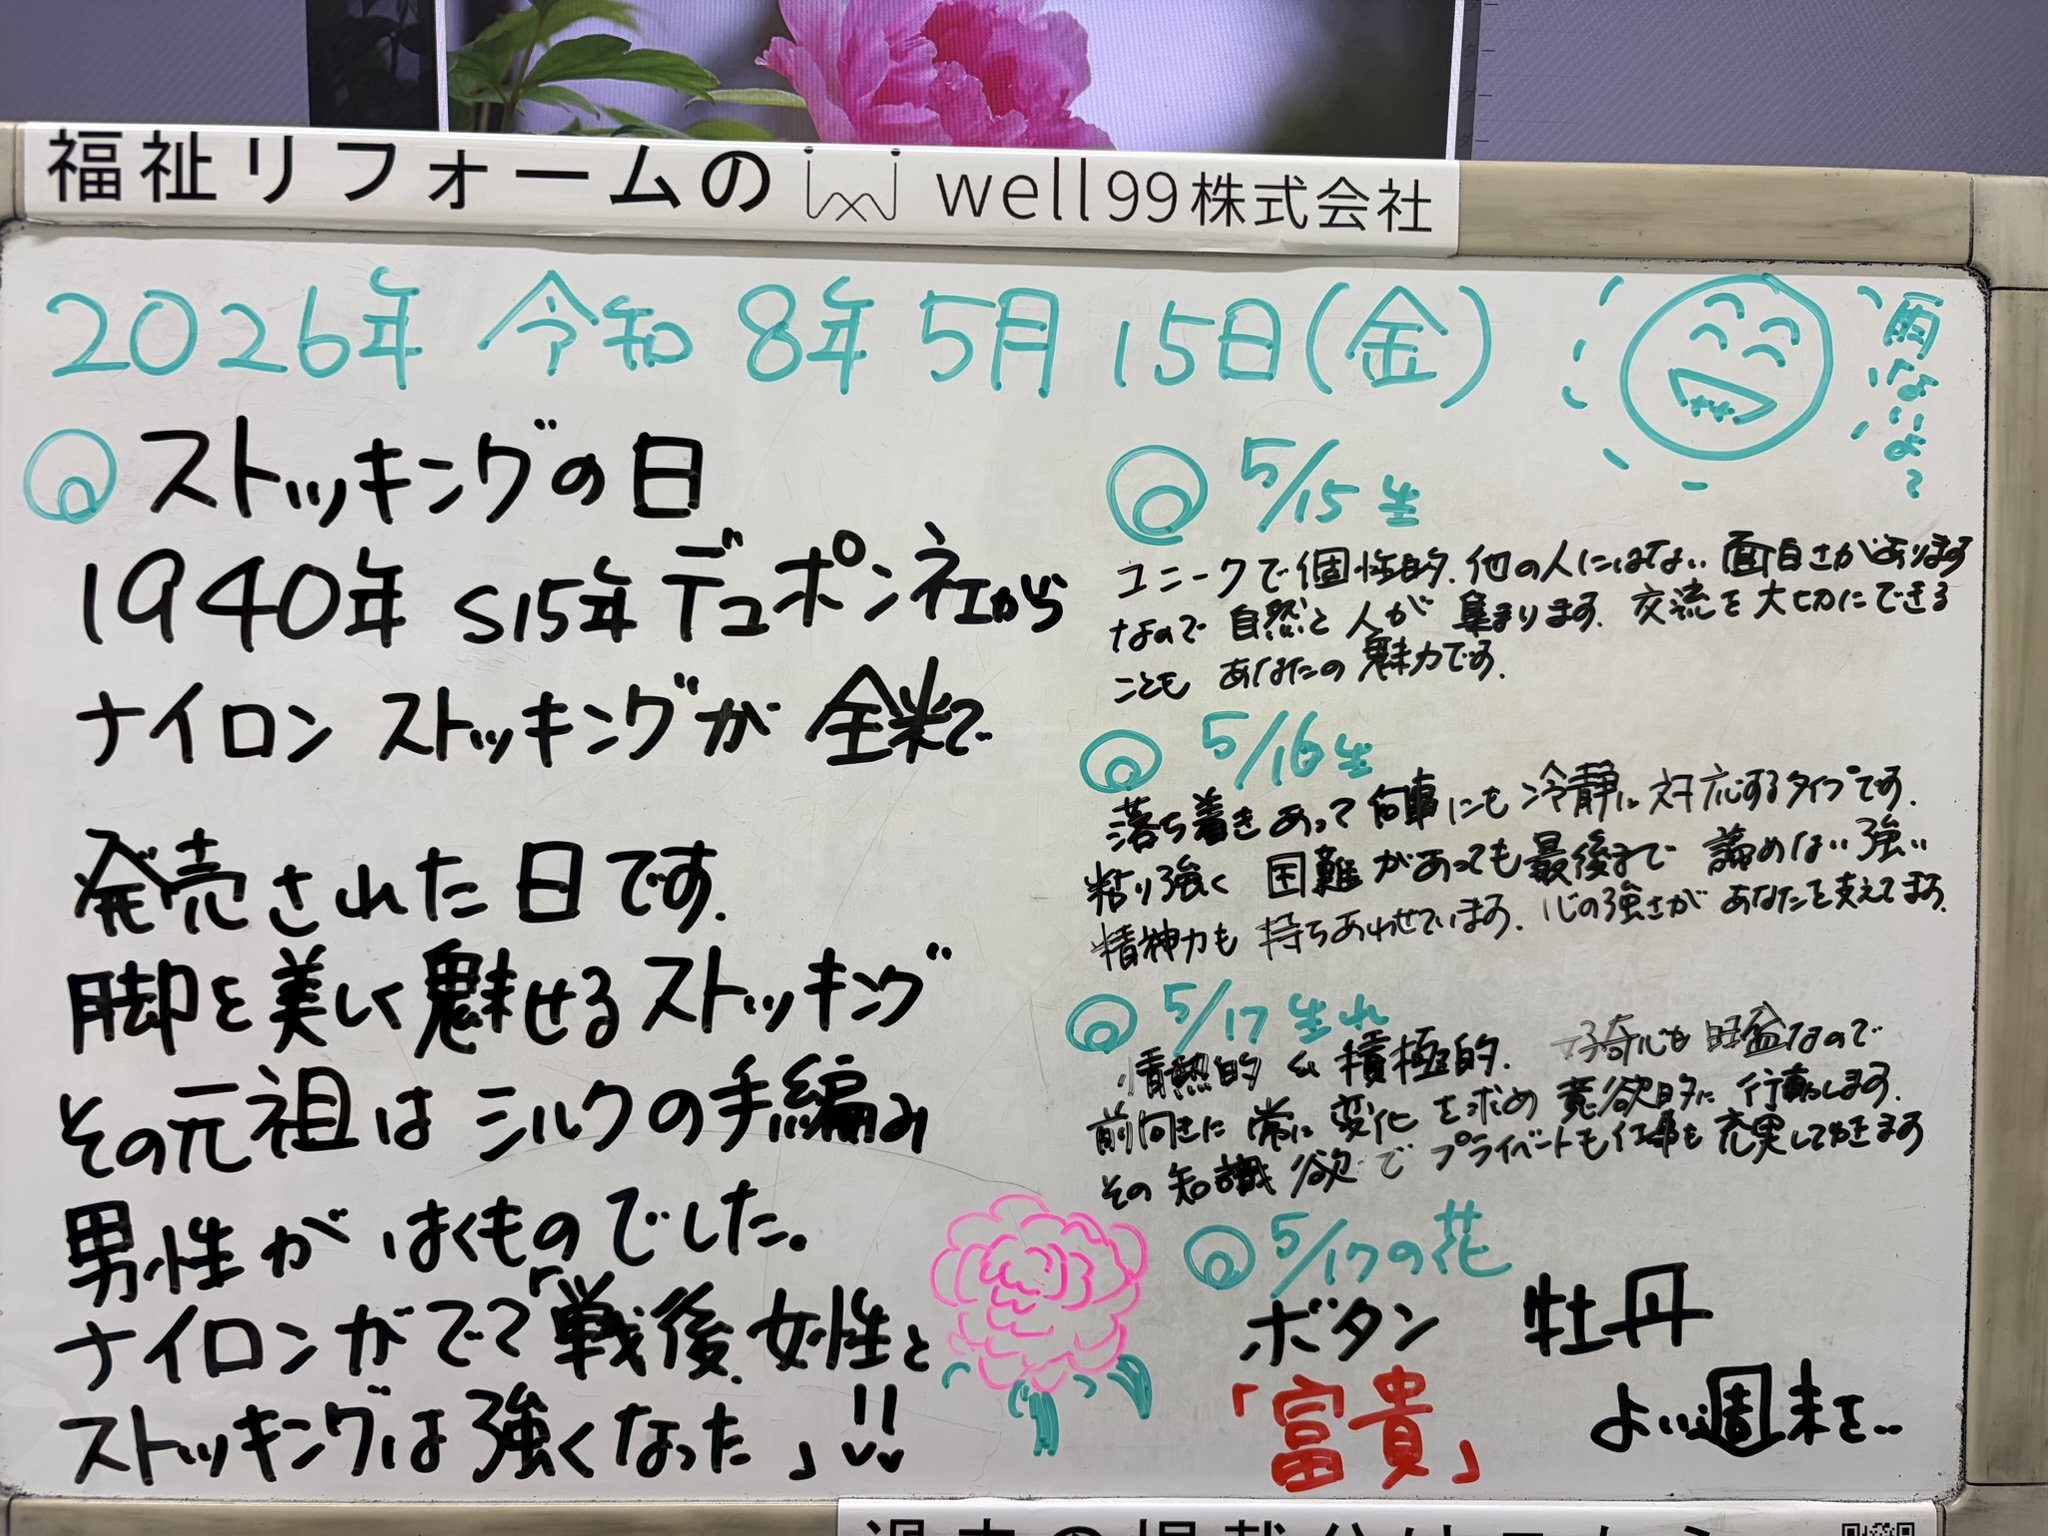 福祉リフォームの well99株式会社
2026年 令和8年 5月 15日(金)
雨なぃよ〜
ストッキングの日
1940年 S15年 デュポン社から
ナイロン ストッキングが 全米で
発売された日です.
脚を美しく魅せるストッキング
その元祖は シルクの手編み
男性が はくものでした。
ナイロンがでて「戦後、女性と
ストッキングは強くなった」!!
5/15生
ユニークで個性的、他の人にはない面白さがあります
なので 自然と人が 集まります. 交流を大切にできる
ことも あなたの魅力です.
5/16生
落ち着きあって何事にも冷静に対応するタイプです.
粘り強く 困難があっても最後まで 諦めない強い
精神力も 持ちあわせています. 心の強さがあなたを支えてます.
5/17生れ
情熱的 & 積極的. 好奇心も旺盛なので
前向きに 常に 変化を求め 意欲的に 行動します.
その知識欲でプライベートも仕事も充実してゆきます
5/17の花
ボタン 牡丹
「富貴」
よい週末を..